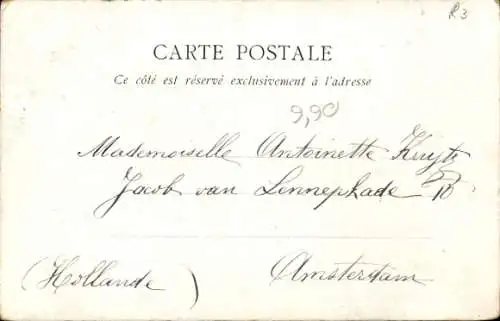 R3
CARTE POSTALE
Ce côté est réservé exclusivement à l'adresse
9,90
Mademoiselle Antoinette Kruytz
Jacob van Lennepkade
(Hollande) Amsterdam